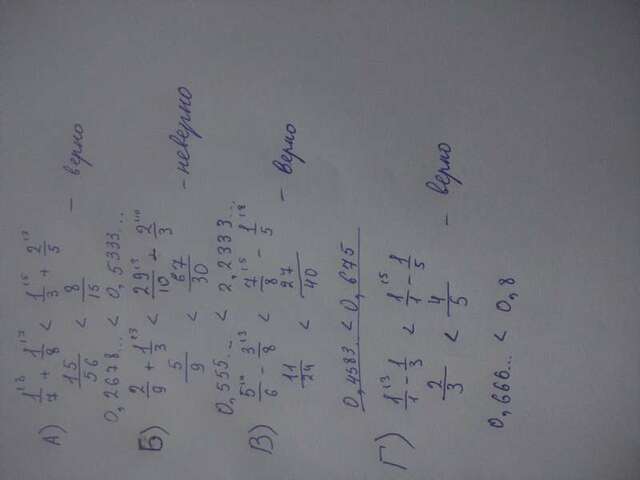 А) 1/7 + 1/8 < 1/3 + 2/5
15/56 < 8/15 - верно
0,2678... < 0,5333...
Б) 2/9 + 1/3 < 29/10 - 2/3
5/9 < 67/30 - неверно
0,555... < 2,2333...
В) 5/6 - 3/8 < 7/8 - 1/5
11/24 < 27/40 - верно
0,4583.. < 0,675
Г) 1/1 - 1/3 < 1/1 - 1/5
2/3 < 4/5 - верно
0,666... < 0,8